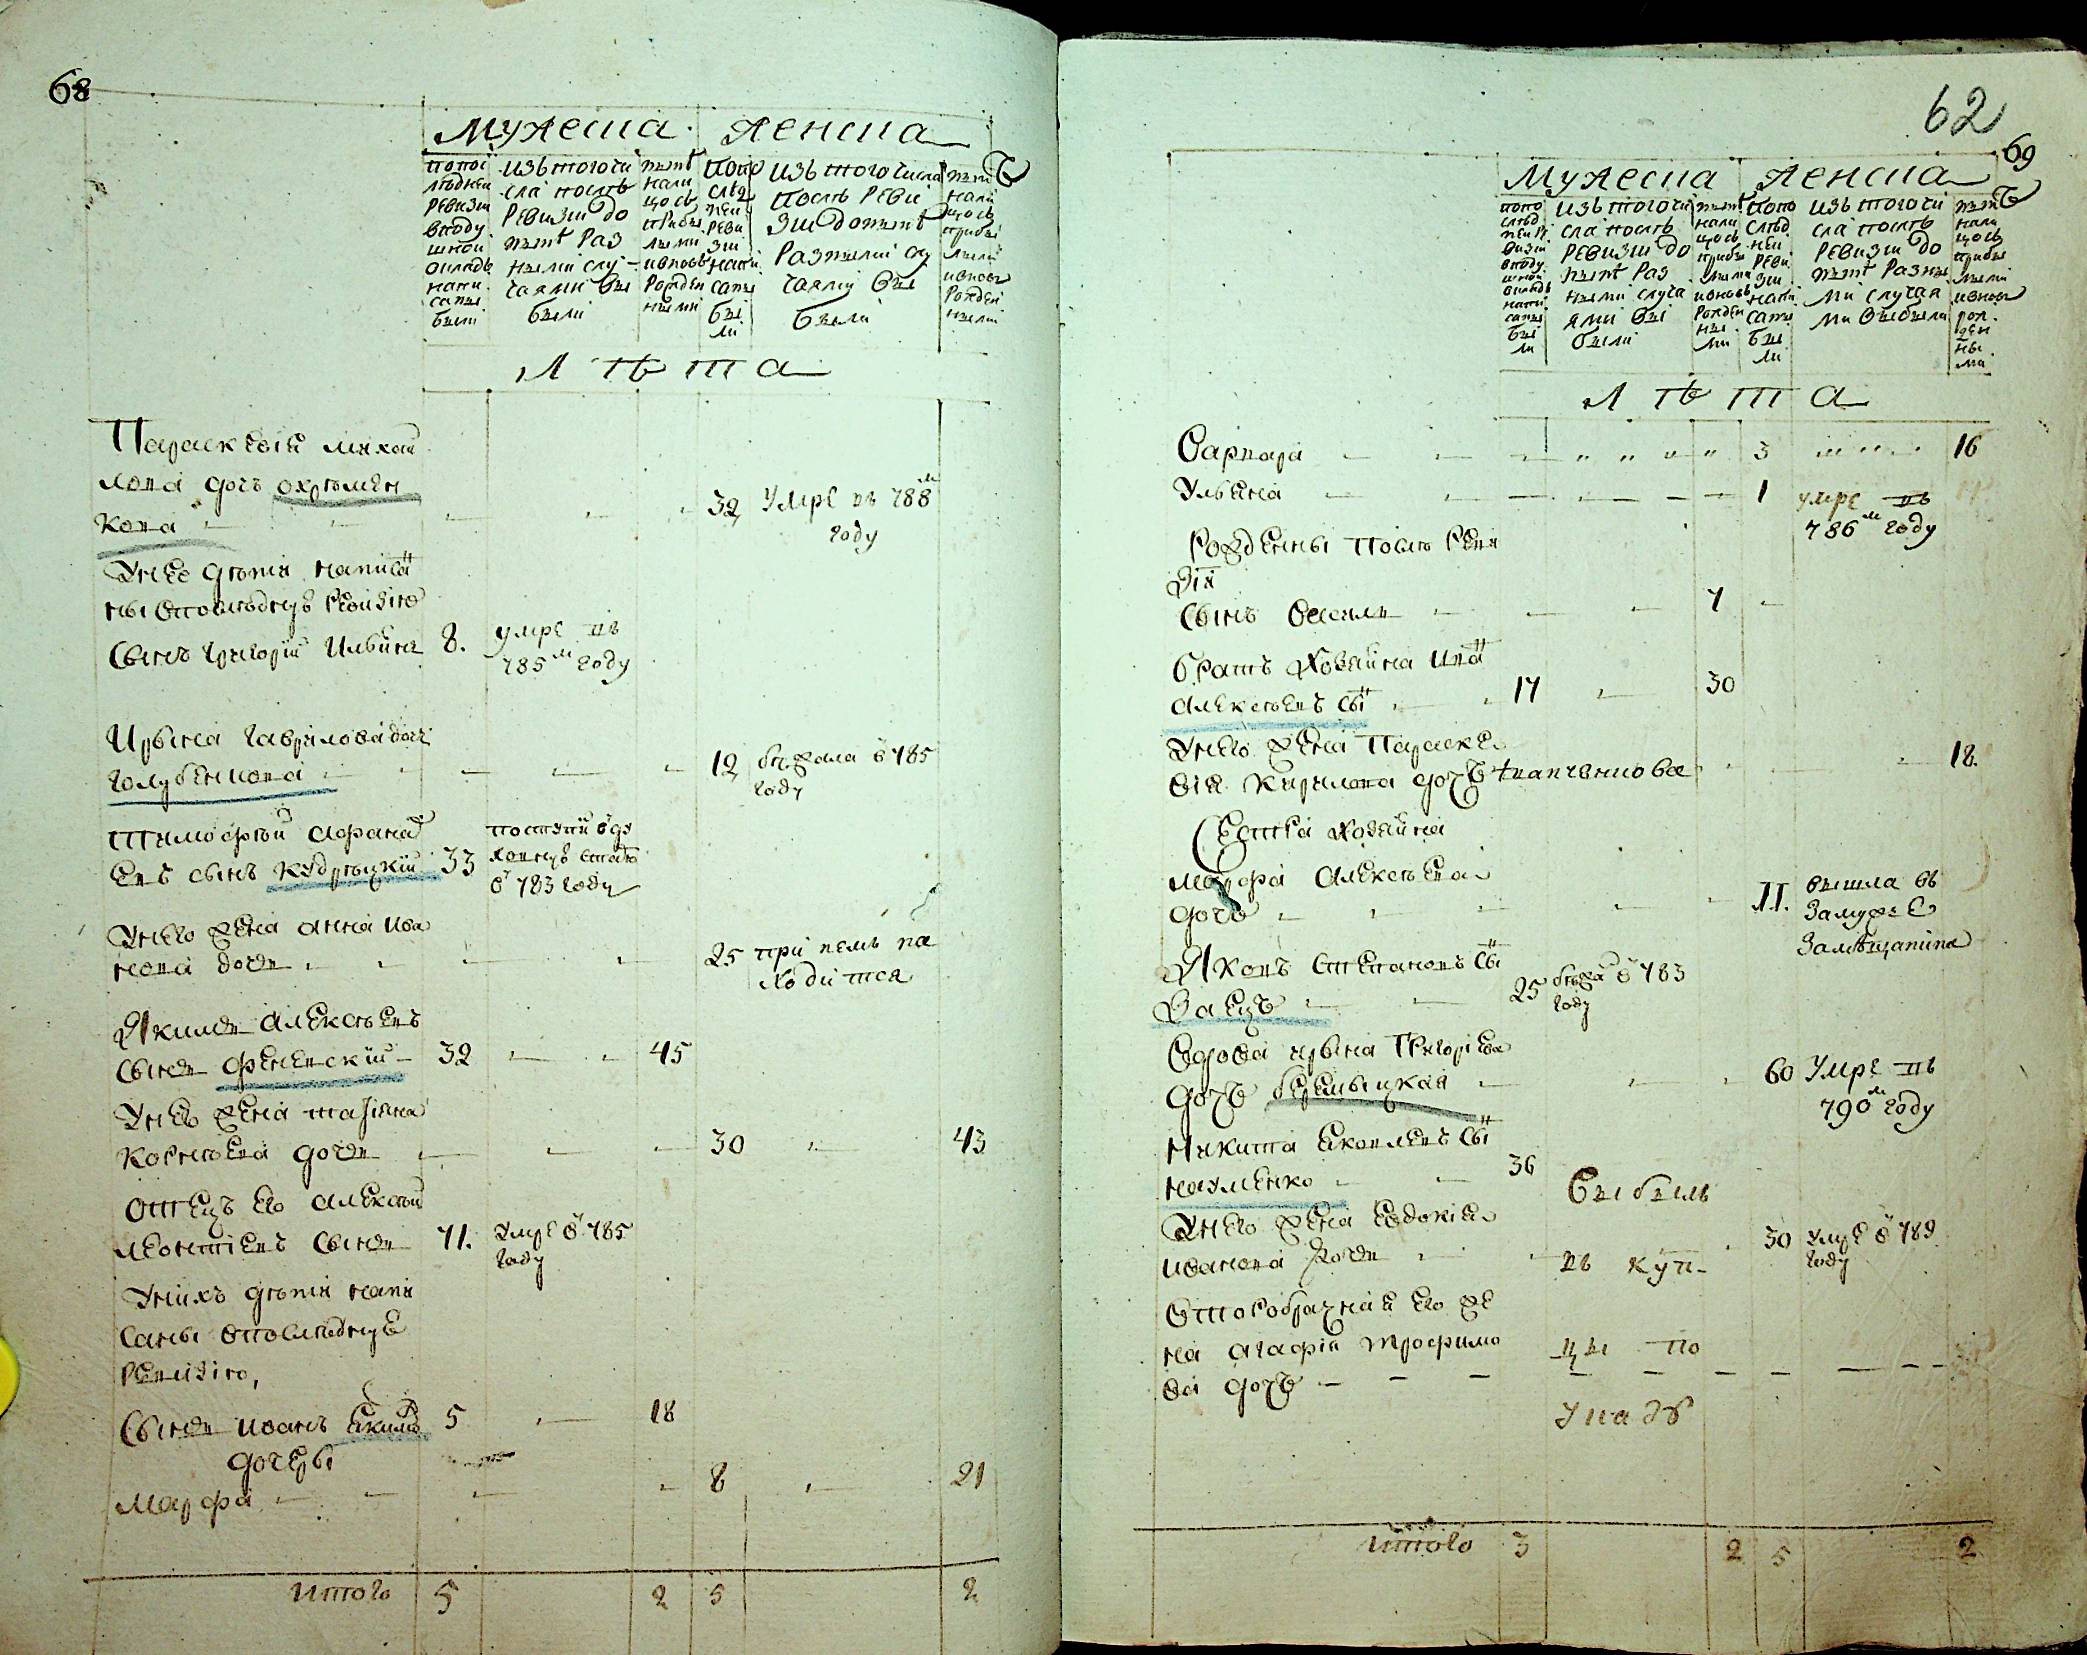 68
Мужеска. Женска
по пос
лѣдней
ревизии
в поду
шной
окладъ
напи
саны
были
изъ того чи
сла послѣ
ревизии до
нынѣ раз
ными слу-
чаями вы
были
нынѣ
нали
цо съ
прибы
лыми
и вновь
рожден
ными
по по
слѣд
ней
реви
зии
напи
саны
бы
ли
изъ того числа
послѣ реви
зии до нынѣ
разными слу
чаями вы
были
нынѣ
нали
цо съ
прибы
лыми
и вновь
рожден
ными
Лѣта
Параскѣвїя михай
лова дочь охрѣмен
кова 32 Умре въ 788м
году
У нее дѣти написа
ны в последнуъ ревизию
Сынъ григорїй Ильинъ 8. умре въ
785м году
Ирына гаврилова дочь
голубенкова 12 бежала в 785
году
Тимофѣй афана
евъ сынъ кудрѣцкїй 33
поступи в ду
ховнуъ стат
в 783 году
У него жена анна ива
нова дочь 25 при немъ на
ходится
Якимъ алексѣевъ
сынъ феневскїй 32 45
У него жена татіяна
корнѣева дочь 30 43
отецъ его алексѣй
леонтіевъ сынъ 71. Умре в 785
году
У нихъ дѣти напи
саны в последнуъ
ревизїю,
Сынъ иванъ Екимо 5 18
дочеръ
Марфа 8 21
итого 5 2 5 2
62
69
Мужеска Женска
по по
слѣд
ней р
визии
в поду
шной
окладъ
напи
саны
бы
ли
изъ того чи
сла послѣ
ревизии до
нынѣ раз
ными случа
ями вы
были
нынѣ
нали
цо съ
прибы
лыми
и вновь
рожден
ны
ми
по по
слѣд
ней
реви
зии
напи
саны
бы
ли
изъ того чи
сла послѣ
ревизии до
нынѣ разны
ми случая
ми выбыли
нынѣ
нали
цо съ
прибы
лыми
и вновь
рож.
ден
ны
ми
Лѣта
Варвара 3 16
Ульяна 1 умре въ
786м году
Рождены послѣ реви
зїи
Сынъ Василь 7
братъ хозяина ива
алексѣевъ сы 17 30
У него жена Параске
вїя кирилова дочь ткапченкова 18.
Сестра хозяина
марфа алексѣева
дочь 11. вышла въ
замуже С
замѣщанина
Яковъ степановъ сы
Заецъ 25 бежа в 783
году
Вдова ирына григорїева
дочь березвицкая 60 Умре въ
790м году
Никита Яковлевъ сы
науменко 36 выбылъ
У него жена Евдокїя
иванова дочь въ куп- 30 умре в 789
году
Второбрачная его же
на агафїя трофимо цы по
ва дочь
указу
итого 3 2 5 2